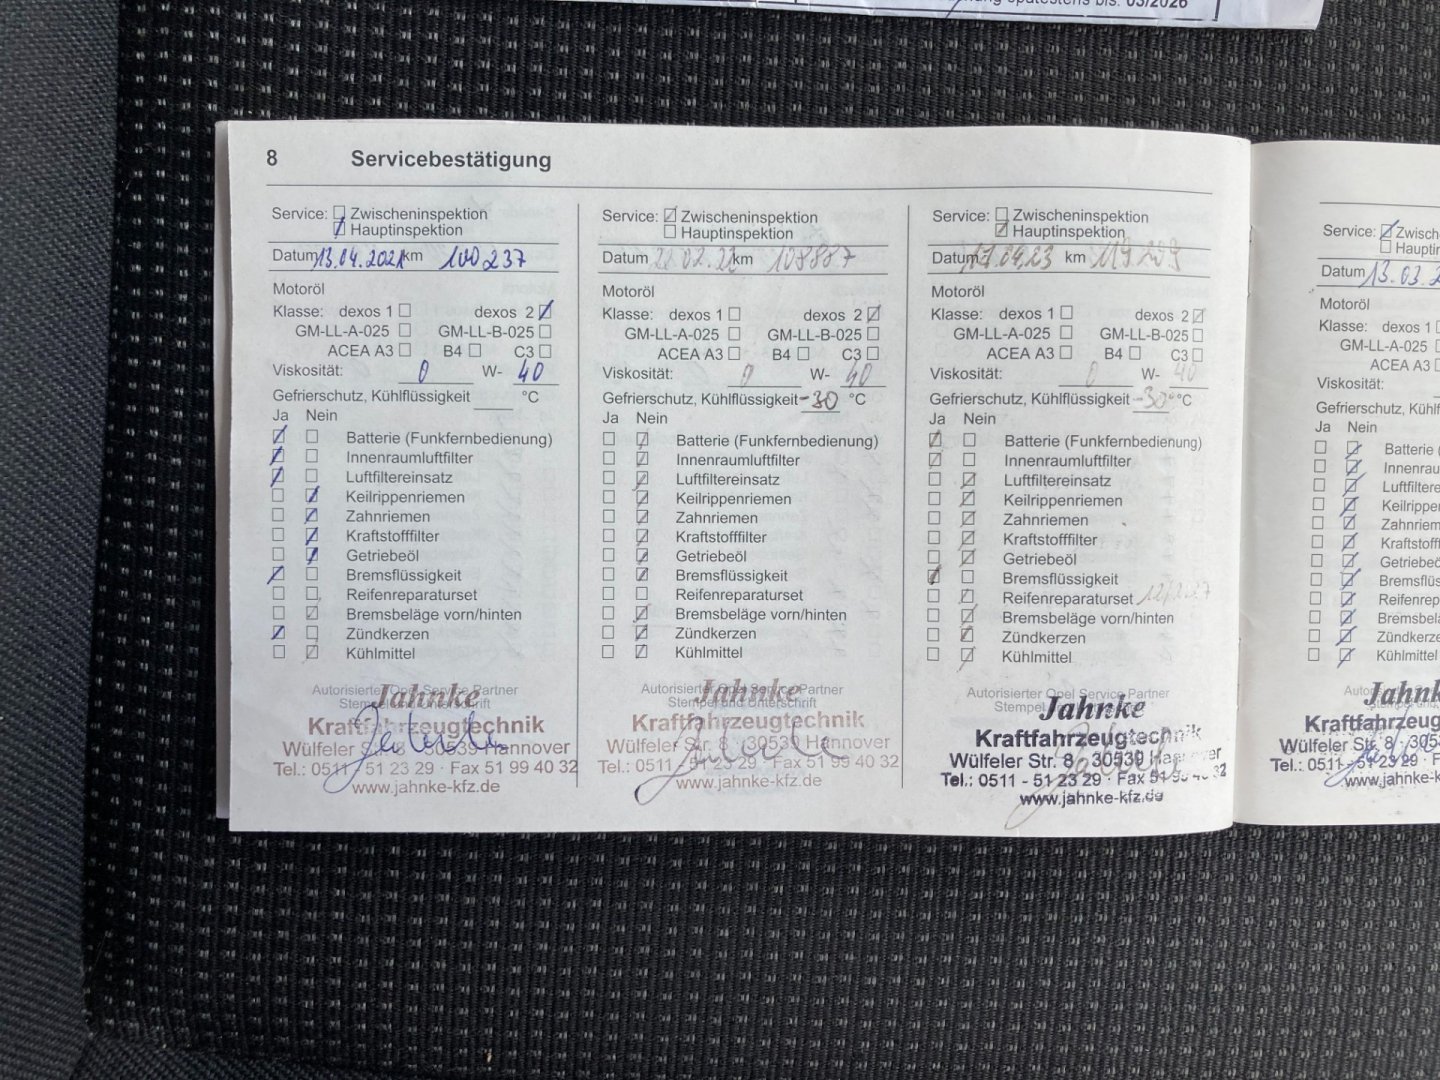 spätestens bis: 03/2026
8 Servicebestätigung
Service: Zwischeninspektion
Hauptinspektion
Datum 13.04.2021 km 100237
Motoröl
Klasse: dexos 1 dexos 2
GM-LL-A-025 GM-LL-B-025
ACEA A3 B4 C3
Viskosität: 0 W- 40
Gefrierschutz, Kühlflüssigkeit °C
Ja Nein
Batterie (Funkfernbedienung)
Innenraumluftfilter
Luftfiltereinsatz
Keilrippenriemen
Zahnriemen
Kraftstofffilter
Getriebeöl
Bremsflüssigkeit
Reifenreparaturset
Bremsbeläge vorn/hinten
Zündkerzen
Kühlmittel
Autorisierter Opel Service Partner
Stempel und Unterschrift
Jahnke
Kraftfahrzeugtechnik
Wülfeler Str. 8 30539 Hannover
Tel.: 0511 - 51 23 29 · Fax 51 99 40 32
www.jahnke-kfz.de
Service: Zwischeninspektion
Hauptinspektion
Datum 22.02.22 km 108887
Motoröl
Klasse: dexos 1 dexos 2
GM-LL-A-025 GM-LL-B-025
ACEA A3 B4 C3
Viskosität: 0 W- 40
Gefrierschutz, Kühlflüssigkeit -30 °C
Ja Nein
Batterie (Funkfernbedienung)
Innenraumluftfilter
Luftfiltereinsatz
Keilrippenriemen
Zahnriemen
Kraftstofffilter
Getriebeöl
Bremsflüssigkeit
Reifenreparaturset
Bremsbeläge vorn/hinten
Zündkerzen
Kühlmittel
Autorisierter Opel Service Partner
Stempel und Unterschrift
Jahnke
Kraftfahrzeugtechnik
Wülfeler Str. 8 30539 Hannover
Tel.: 0511 - 51 23 29 · Fax 51 99 40 32
www.jahnke-kfz.de
Service: Zwischeninspektion
Hauptinspektion
Datum 17.04.23 km 119209
Motoröl
Klasse: dexos 1 dexos 2
GM-LL-A-025 GM-LL-B-025
ACEA A3 B4 C3
Viskosität: 0 W- 40
Gefrierschutz, Kühlflüssigkeit -30° °C
Ja Nein
Batterie (Funkfernbedienung)
Innenraumluftfilter
Luftfiltereinsatz
Keilrippenriemen
Zahnriemen
Kraftstofffilter
Getriebeöl
Bremsflüssigkeit
Reifenreparaturset 12/2027
Bremsbeläge vorn/hinten
Zündkerzen
Kühlmittel
Autorisierter Opel Service Partner
Stempel
Jahnke
Kraftfahrzeugtechnik
Wülfeler Str. 8 30539 Hannover
Tel.: 0511 - 51 23 29 · Fax 51 99 40 32
www.jahnke-kfz.de
Service: Zwisch
Hauptin
Datum 13.03.2
Motoröl
Klasse: dexos 1
GM-LL-A-025
ACEA A3
Viskosität:
Gefrierschutz, Kühlf
Ja Nein
Batterie
Innenrau
Luftfiltere
Keilrippe
Zahnriem
Kraftstoff
Getriebeö
Bremsflüs
Reifenrep
Bremsbelä
Zündkerze
Kühlmittel
Jahnk
Kraftfahrzeug
Wülfeler Str. 8 305
Tel.: 0511 - 51 23 29 · F
www.jahnke-kfz